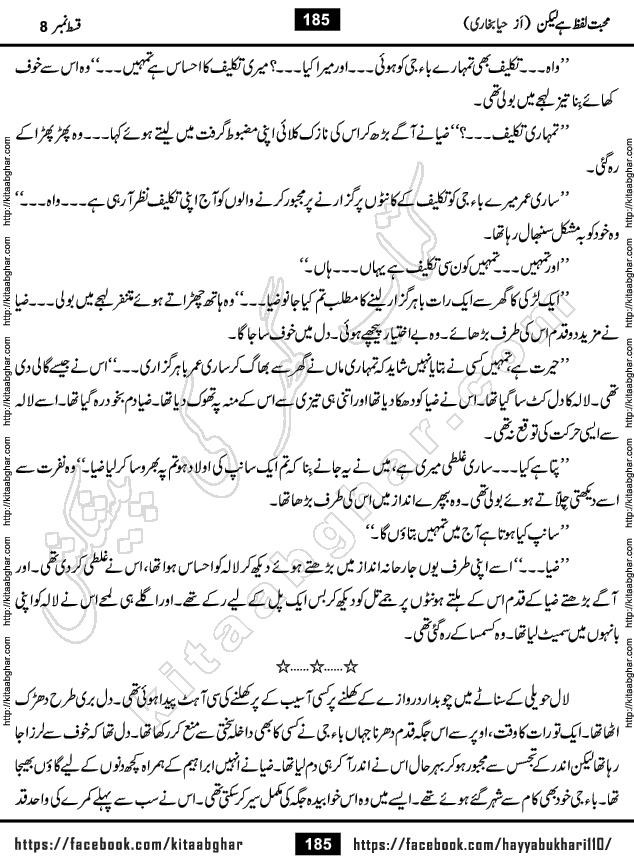 محبت لفظ ہے لیکن (از حیا بخاری)
185
قسط نمبر 8
’’واہ۔۔۔ تکلیف بھی تمہارے باء جی کو ہوئی۔۔۔اور میرا کیا۔۔۔؟ میری تکلیف کا احساس ہے تمہیں۔۔۔‘‘ وہ اس سے خوف
کھائے بِنا تیز لہجے میں بولی تھی۔
’’تمہاری تکلیف۔۔۔؟‘‘ ضیا نے آگے بڑھ کر اس کی نازک کلائی اپنی مضبوط گرفت میں لیتے ہوئے کہا۔۔۔وہ پھڑ پھڑا کے
رہ گئی۔
’’ساری عمر میرے باء جی کو تکلیف کے کانٹوں پر گزارنے پر مجبور کرنے والوں کو آج اپنی تکلیف نظر آ رہی ہے۔۔۔واہ۔۔۔‘‘
وہ خود کو بہ مشکل سنبھال رہا تھا۔
’’اور تمہیں۔۔۔تمہیں کون سی تکلیف ہے یہاں۔۔۔ہاں۔‘‘
’’ایک لڑکی کا گھر سے ایک رات باہر گزار لینے کا مطلب تم کیا جانو ضیا۔۔۔‘‘ وہ ہاتھ چھڑاتے ہوئے متنفر لہجے میں بولی۔۔۔ضیا
نے مزید دو قدم اس کی طرف بڑھائے۔وہ بے اختیار پیچھے ہوئی۔ دل میں خوف سا جاگا۔
’’حیرت ہے، تمہیں کسی نے بتایا نہیں شاید کہ تمہاری ماں نے گھر سے بھاگ کر ساری عمر باہر گزاری۔۔۔‘‘ اس نے جیسے گالی دی
تھی۔ لالہ کا دل کٹ سا گیا تھا۔ اس نے ضیا کو دھکا دیا تھا اور اتنی ہی تیزی سے اس کے منہ پہ تھوک دیا تھا۔ ضیا دم بخود رہ گیا تھا۔ اسے لالہ
سے ایسی حرکت کی توقع نہ تھی۔
’’پتا ہے کیا۔۔۔ ساری غلطی میری ہے، میں نے یہ جانے بِنا کہ تم ایک سانپ کی اولاد ہو تم پہ بھروسا کر لیا ضیا۔‘‘ وہ نفرت سے
اسے دیکھتی چلّاتے ہوئے بولی تھی۔ وہ بپھرے انداز میں اس کی طرف بڑھا تھا۔
’’سانپ کیا ہوتا ہے آج میں تمہیں بتاؤں گا۔‘‘
’’ضیا۔۔۔‘‘ اسے اپنی طرف یوں جارحانہ انداز میں بڑھتے ہوئے دیکھ کر لالہ کو احساس ہوا تھا، اس نے غلطی کر دی تھی۔ اور
آگے بڑھتے ضیا کے قدم اس کے ہلتے ہونٹوں پر جمے تل کو دیکھ کر بس ایک پل کے لیے رکے تھے۔ اور اگلے ہی لمحے اس نے لالہ کو اپنی
بانہوں میں سمیٹ لیا تھا۔ وہ کسمسا کے رہ گئی تھی۔
☆......☆......☆
لال حویلی کے سناٹے میں چوبدار دروازے کے کھلنے پر کسی آسیب کے پر کھلنے کی سی آہٹ پیدا ہوئی تھی۔ دل بری طرح دھڑک
اٹھا تھا۔ ایک تو رات کا وقت، اوپر سے اس جگہ قدم دھرنا جہاں باء جی نے کسی کا بھی داخلہ سختی سے منع کر رکھا تھا۔ دل تھا کہ خوف سے لرزا جا
رہا تھا لیکن اندر کے تجسس سے مجبور ہو کر بہر حال اس نے اندر آ کر ہی دم لیا تھا۔ ضیا نے انہیں ابراہیم کے ہمراہ کچھ دنوں کے لیے گاؤں بھیجا
تھا۔ باء جی خود بھی کام سے شہر گئے ہوئے تھے۔ ایسے میں وہ اس خوابیدہ جگہ کی مکمل سیر کر سکتی تھی۔ اس نے سب سے پہلے کمرے کی واحد قد
https://facebook.com/kitaabghar
185
https://facebook.com/hayyabukhari110/
http://kitaabghar.com http://kitaabghar.com http://kitaabghar.com http://kitaabghar.com http://kitaabghar.com http://kitaabghar.com
http://kitaabghar.com http://kitaabghar.com http://kitaabghar.com http://kitaabghar.com http://kitaabghar.com http://kitaabghar.com
کتاب گھر کی پیشکش
kitaabghar.com